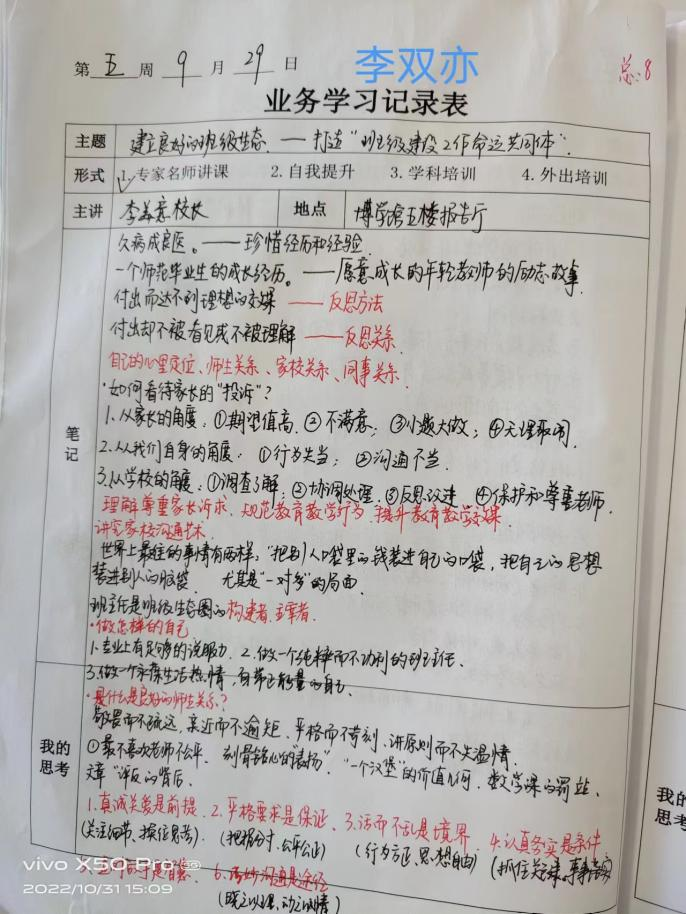 第 五 周 9 月 29 日
李双亦
总:8
业务学习记录表
主题 建立良好的班级生态 —— 打造“班级建设工作命运共同体”
形式 1.专家名师讲课 2.自我提升 3.学科培训 4.外出培训
主讲 李 校长 地点 博学馆五楼报告厅
笔记
久病成良医。—— 珍惜经历和经验
一个师范毕业生的成长经历。—— 愿意成长的年轻教师的励志故事
付出而达不到理想的效果 —— 反思方法
付出却不被看见或不被理解 —— 反思关系
自己的心里定位、师生关系、家校关系、同事关系
·如何看待家长的“投诉”?
1、从家长的角度:①期望值高 ②不满意; ③小题大做; ④无理取闹
2.从我们自身的角度: ①行为失当; ②沟通不当
3.从学校的角度:①调查了解;②协调处理 ③反思改进 ④保护和尊重老师
理解尊重家长诉求、规范教育教学行为 提升教育教学效果
讲究家校沟通艺术
世界上最难的事情有两样,“把别人口袋里的钱装进自己的口袋,把自己的思想
装进别人的脑袋 尤其是“一对多”的局面
班主任是班级生态圈的构建者、主宰者
·做怎样的自己
1.专业上有足够的说服力 2.做一个纯粹而不功利的班主任
3.做一个永葆生活热情,自带正能量的自己
我的思考
·是什么是良好的师生关系?
敬畏而不疏远,亲近而不逾矩、严格而不苛刻、讲原则而不失温情
①最不喜欢老师不公平 刻骨铭心的“表扬” “一个汉堡”的价值几何、数学课的罚站
文章“评反的背后
1.真诚关爱是前提 2.严格要求是保证、3.活而不乱是境界 4.认真务实是条件
(关注细节、换位思考) (把握分寸、公平公正) (行为方正、思想自由) (抓住关键、事事落实
6. 沟通是途径
(晓之以理、动之以情)
我的思考
vivo X50 Pro
2022/10/31 15:09